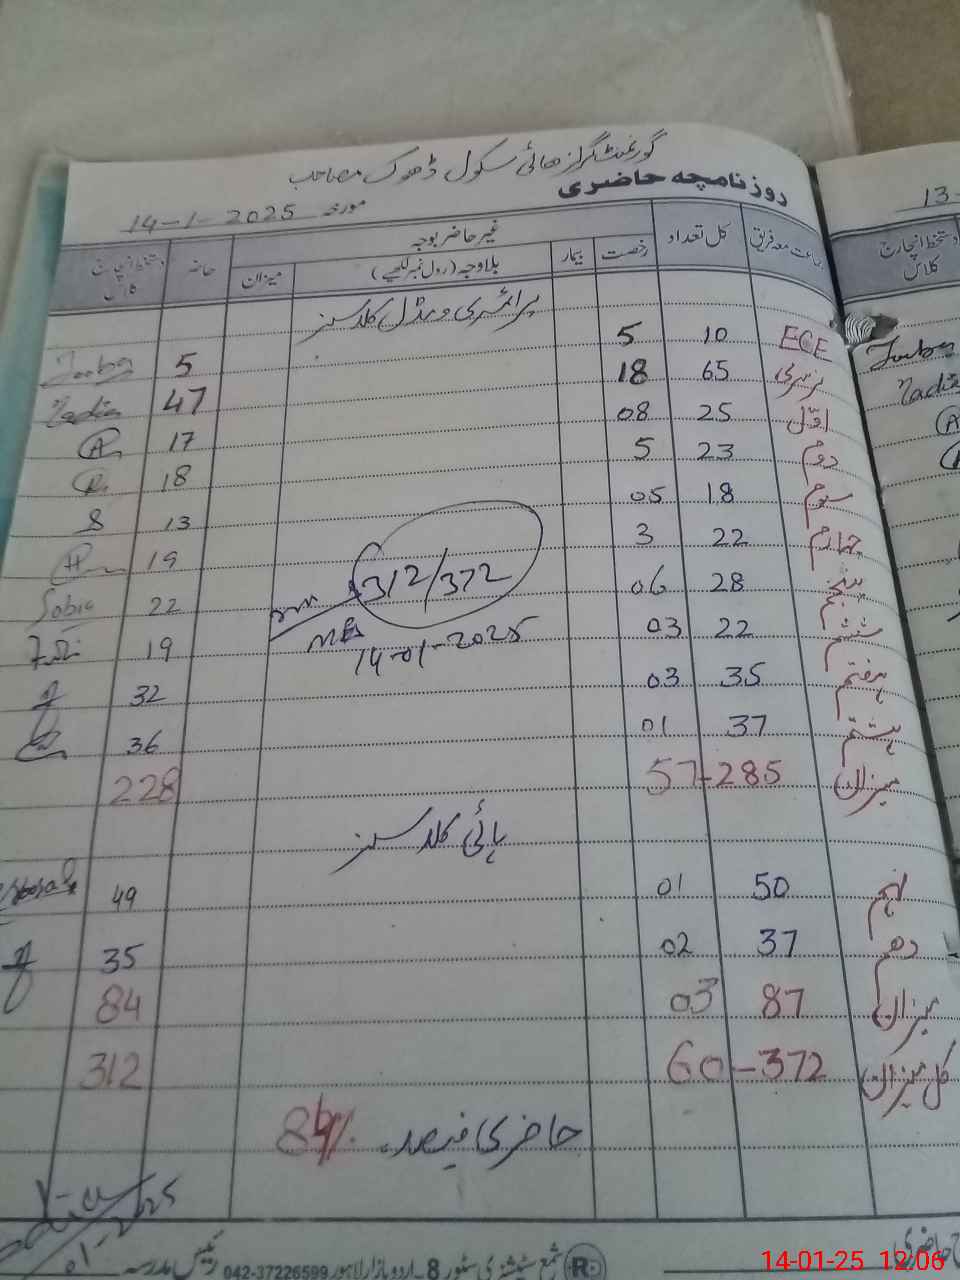 گورنمنٹ گرلز ھائی سکول ڈھوک مصاحب
روزنامچہ حاضری
مورخہ 14-1-2025
جماعت معہ فریق کل تعداد غیر حاضر بوجہ حاضر دستخط انچارج کلاس
رخصت بیمار بلاوجہ (رول نمبر لکھیے) میزان
پرائمری و مڈل کلاسسز
ECE 10 5 5
نرسری 65 18 47 Nadia
اوّل 25 08 17
دوم 23 5 18
سوم 18 05 13
چہارم 22 3 19
پنجم 28 06 22 Sobia
ششم 22 03 19
ہفتم 35 03 32
ہشتم 37 01 36
312/372
14-01-2025
میزان 285-57 228
ہائی کلاسسز
نہم 50 01 49
دھم 37 02 35
میزان 87 03 84
کل میزان 372-60 312
حاضری فیصد 84%
شمع سٹیشنری سٹور 8-اردو بازار لاہور 042-37226599 رئیس مدرسہ
R
13-
دستخط انچارج کلاس
Nadia
14-01-25 12:06